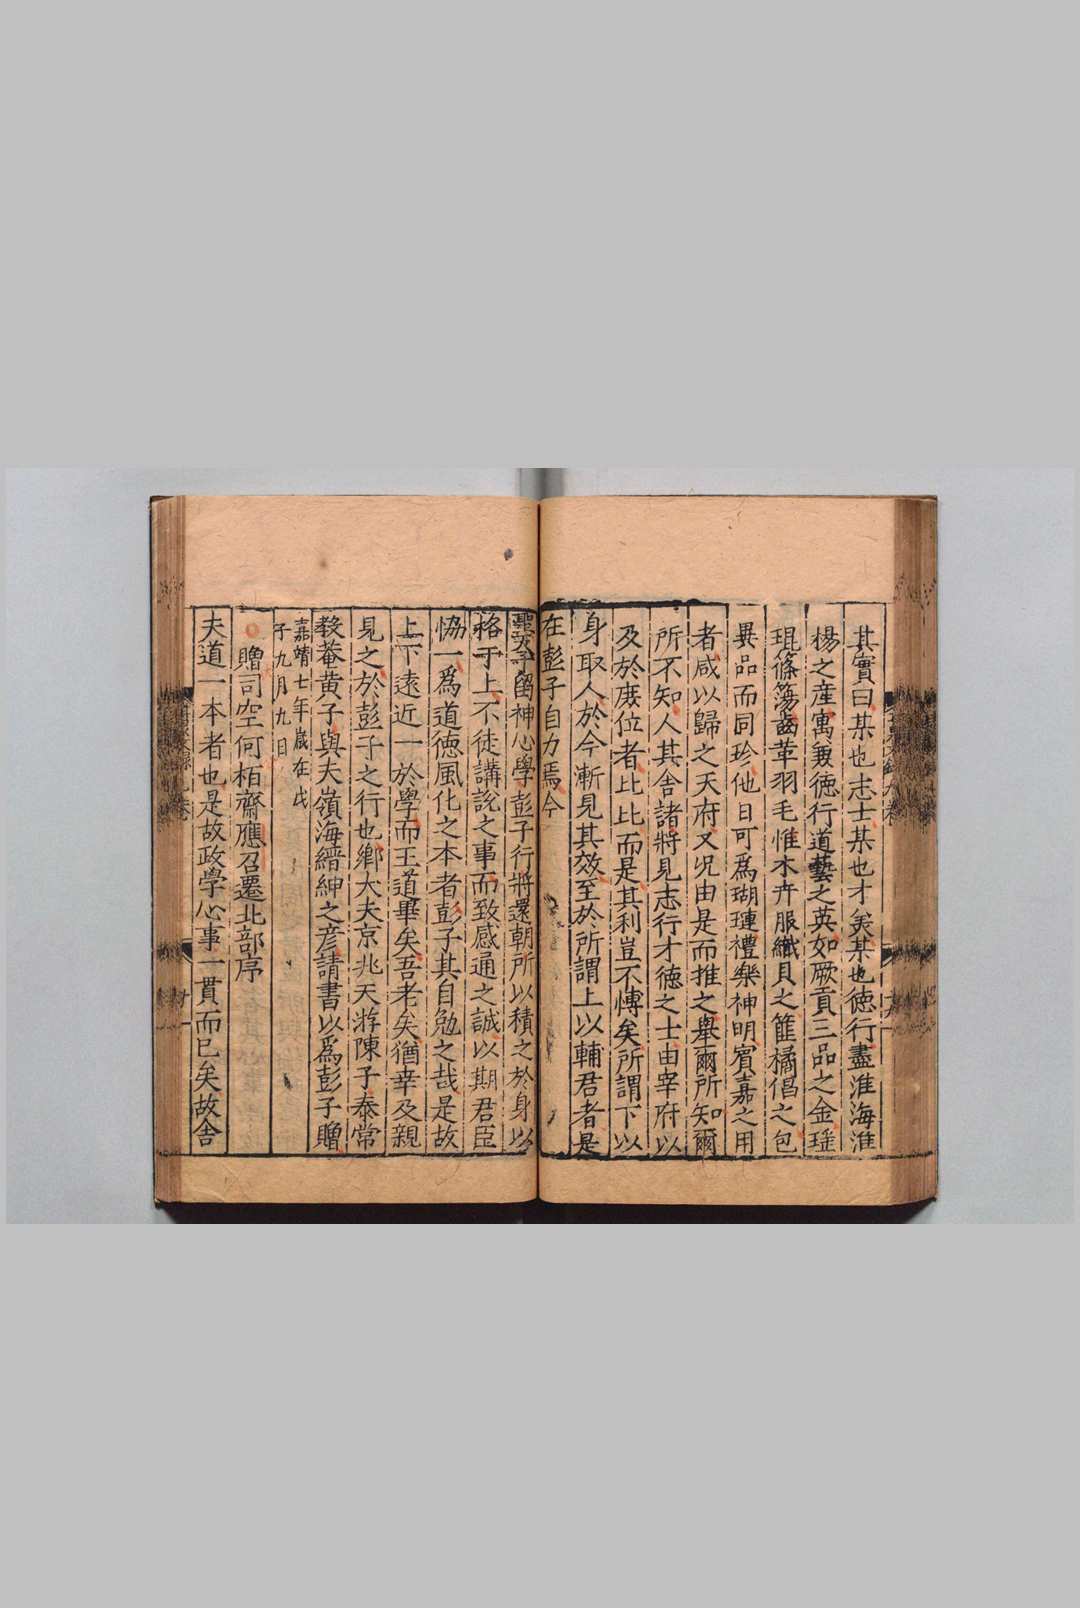 其實曰某也志士某也才矣某也徳行盡淮海淮
楊之産寓兼徳行道藝之英如厥貢三品之金瑤
琨篠簜齒革羽毛惟木卉服織貝之篚橘倡之包
異品而同珍他日可爲瑚璉禮樂神明賓嘉之用
者咸以歸之天府又况由是而推之舉爾所知爾
所不知人其舍諸將見志行才德之士由宰府以
及於庶位者比比而是其利豈不愽矣所謂下以
身取人於今漸見其效至於所謂上以輔君者是
在彭子自力焉今
聖天子留神心學彭子行將還朝所以積之於身以
格于上不徒講說之事而致感通之誠以期君臣
恊一爲道徳風化之本者彭子其自勉之哉是故
上下遠近一於學而王道畢矣吾老矣猶幸及親
見之於彭子之行也鄉大夫京兆天游陳子泰常
致菴黄子與夫嶺海縉紳之彥請書以爲彭子贈
嘉靖七年歲在戊
子九月九日
贈司空何栢齋應召遷北部序
夫道一本者也是故政學心事一貫而已矣故舍